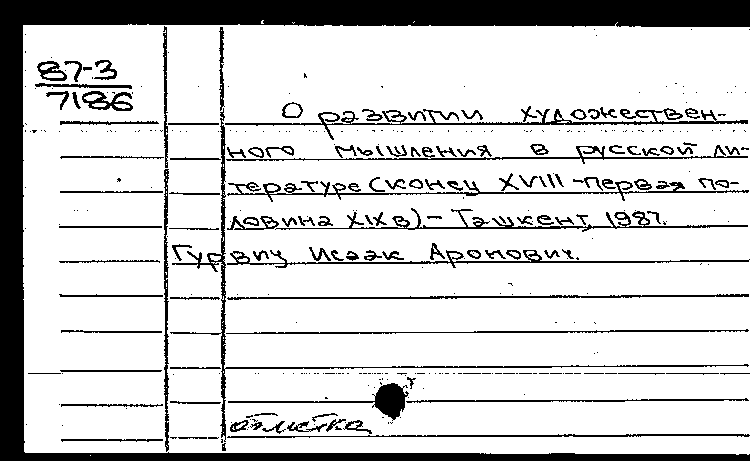 87-3
7186
О развитии художествен-
ного мышления в русской ли-
тературе (конец XVIII-первая по-
ловина XIX в).- Ташкент, 1987.
Гурвич Исаак Аронович.
отметка